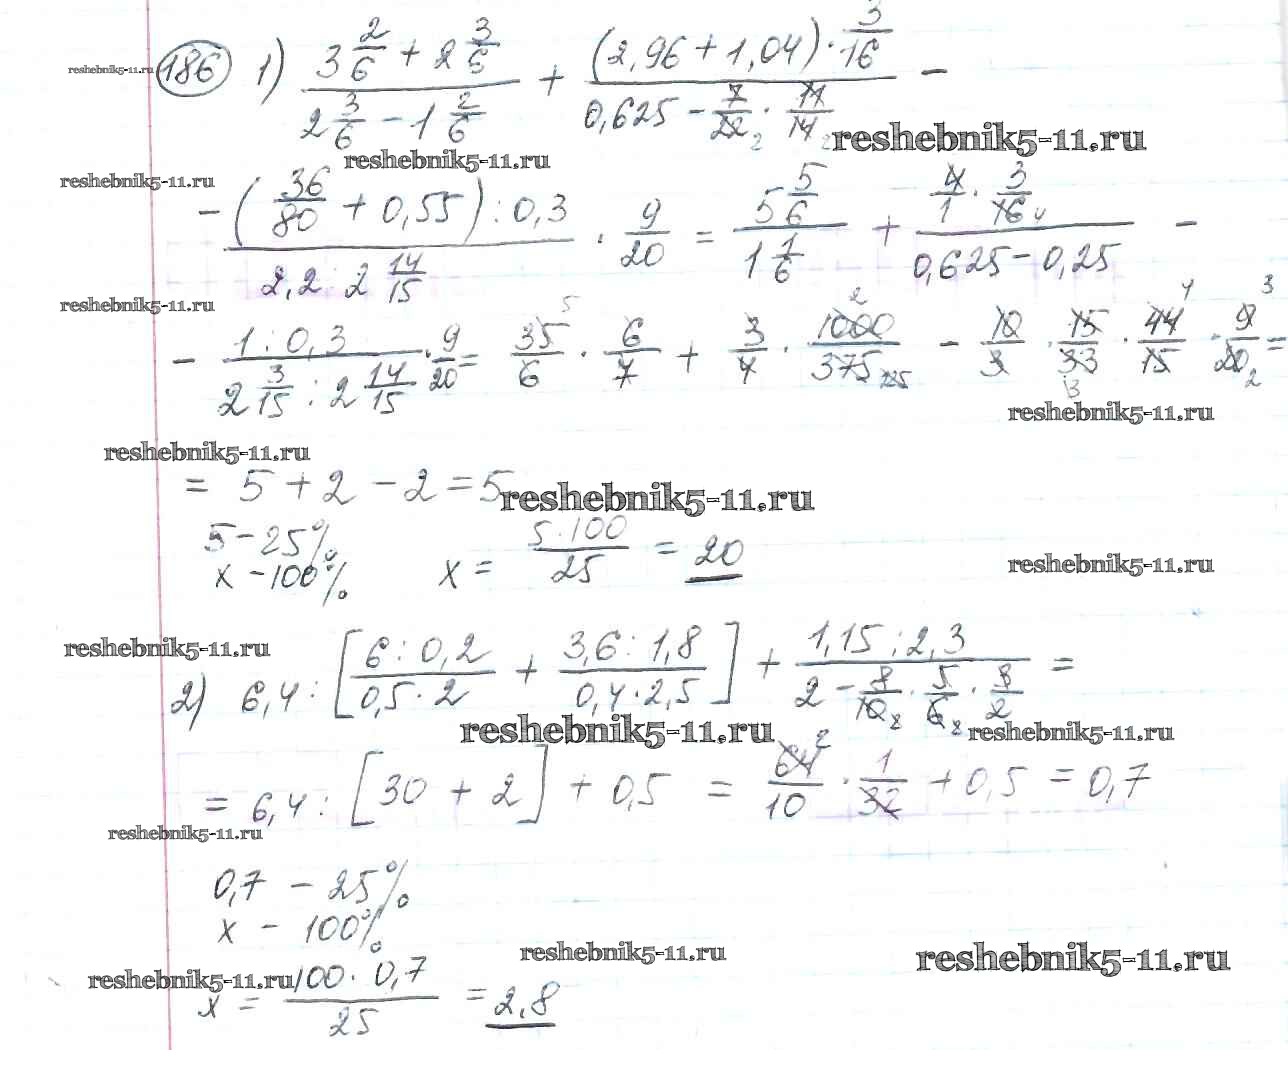 reshebnik5-11.ru 186 1) (3 2/6 + 2 3/6)/(2 3/6 − 1 2/6) + ((2,96 + 1,04) · 3/16)/(0,625 − 7/22 · 11/14) −
reshebnik5-11.ru reshebnik5-11.ru
reshebnik5-11.ru
− ((36/80 + 0,55) : 0,3)/(2,2 : 2 14/15) · 9/20 = (5 5/6)/(1 1/6) + (4/1 · 3/16)/(0,625 − 0,25) −
reshebnik5-11.ru
− (1 : 0,3)/(2 3/15 : 2 14/15) · 9/20 = 35/6 · 6/7 + 3/4 · 1000/375 − 10/3 · 15/33 · 44/15 · 9/20 =
reshebnik5-11.ru
reshebnik5-11.ru
= 5 + 2 − 2 = 5
reshebnik5-11.ru
5 − 25%
x − 100% x = 5·100/25 = 20
reshebnik5-11.ru
reshebnik5-11.ru
2) 6,4 : [(6 : 0,2)/(0,5 · 2) + (3,6 : 1,8)/(0,4 · 2,5)] + (1,15 : 2,3)/(2 − 8/10 · 5/6 · 3/2) =
reshebnik5-11.ru reshebnik5-11.ru
= 6,4 : [30 + 2] + 0,5 = 64/10 · 1/32 + 0,5 = 0,7
reshebnik5-11.ru
0,7 − 25%
x − 100%
reshebnik5-11.ru reshebnik5-11.ru
reshebnik5-11.ru
x = 100 · 0,7/25 = 2,8